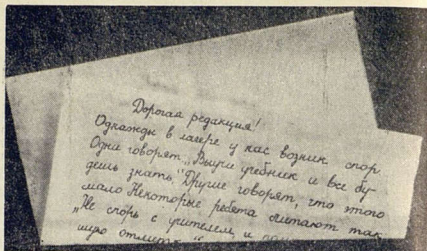 Дорогая редакция!
Однажды в лагере у нас возник спор
Одни говорят: „Выучи учебник и все бу-
дешь знать." Другие говорят, что этого
мало Некоторые ребята считают так
„Не спорь с учителем, и